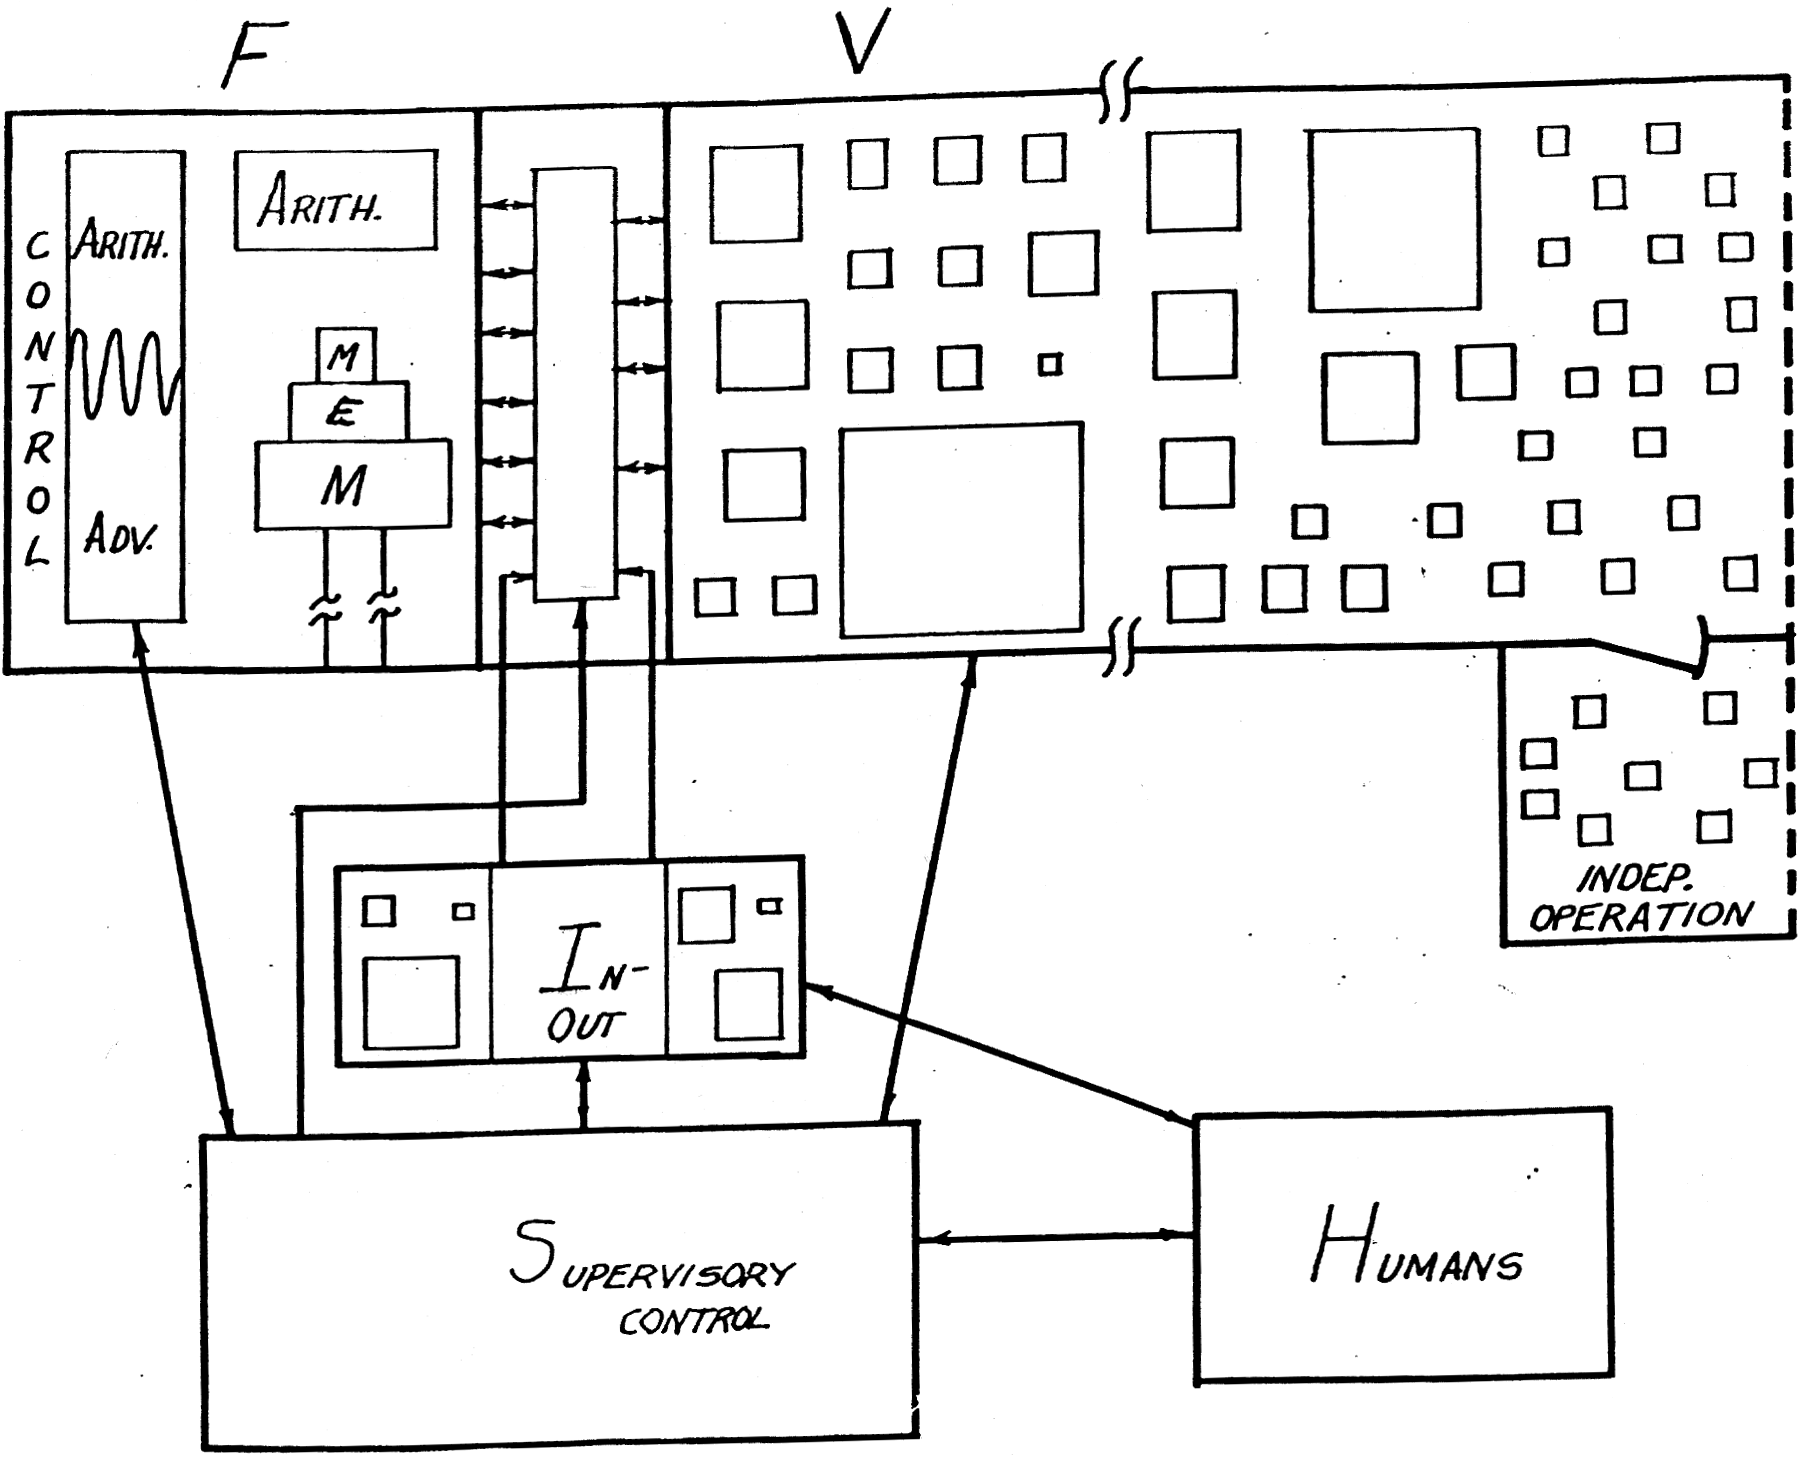 F
V
CONTROL
ARITH.
ADV.
ARITH.
M
E
M
INDEP.
OPERATION
IN-
OUT
SUPERVISORY
CONTROL
HUMANS